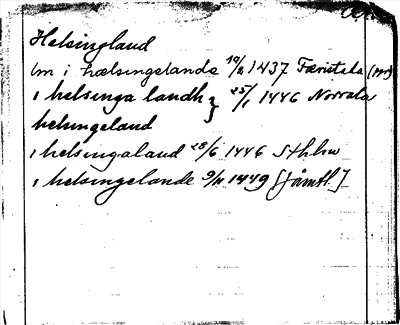 Helsingland
i hælsingelande 19/2 1437 Færistada
i helsinga landh } 25/1 1446 Norrala
helsingeland
i helsingaland 28/6 1446 Sthlm
i helsingelande 9/11 1449 [Jämtl.]